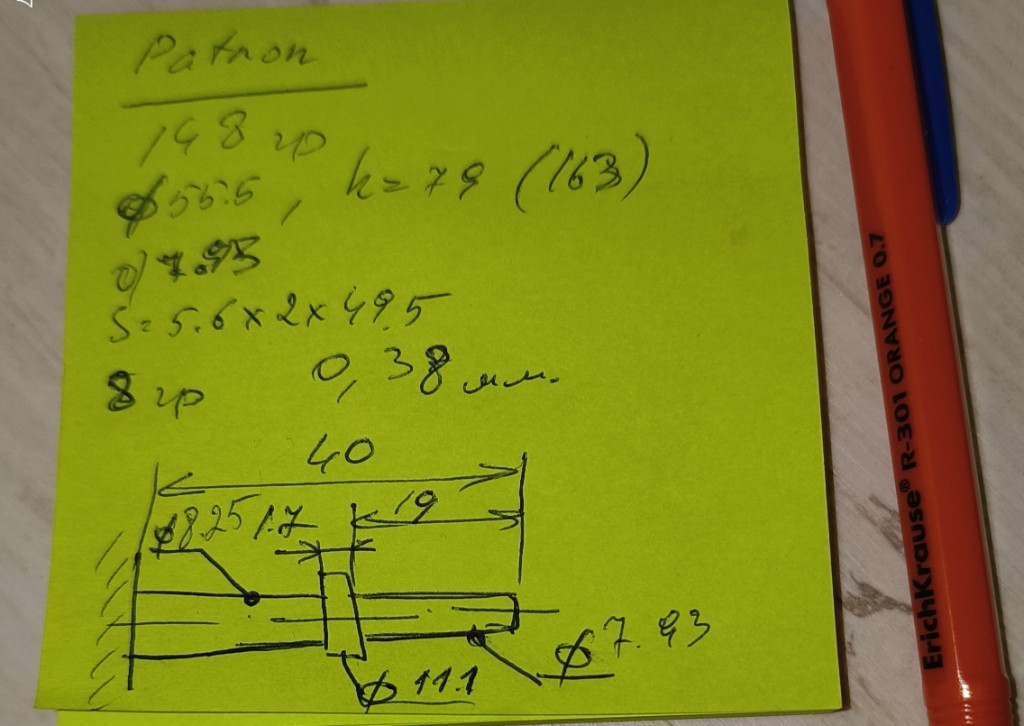 Patron
148 гр
ø55.5, h=79 (163)
0) 7.93
S=5.6×2×49.5
8 гр 0,38 мм.
40
ø8.25 1.7 19
ø7.93
ø11.1
ErichKrause® R-301 ORANGE 0.7